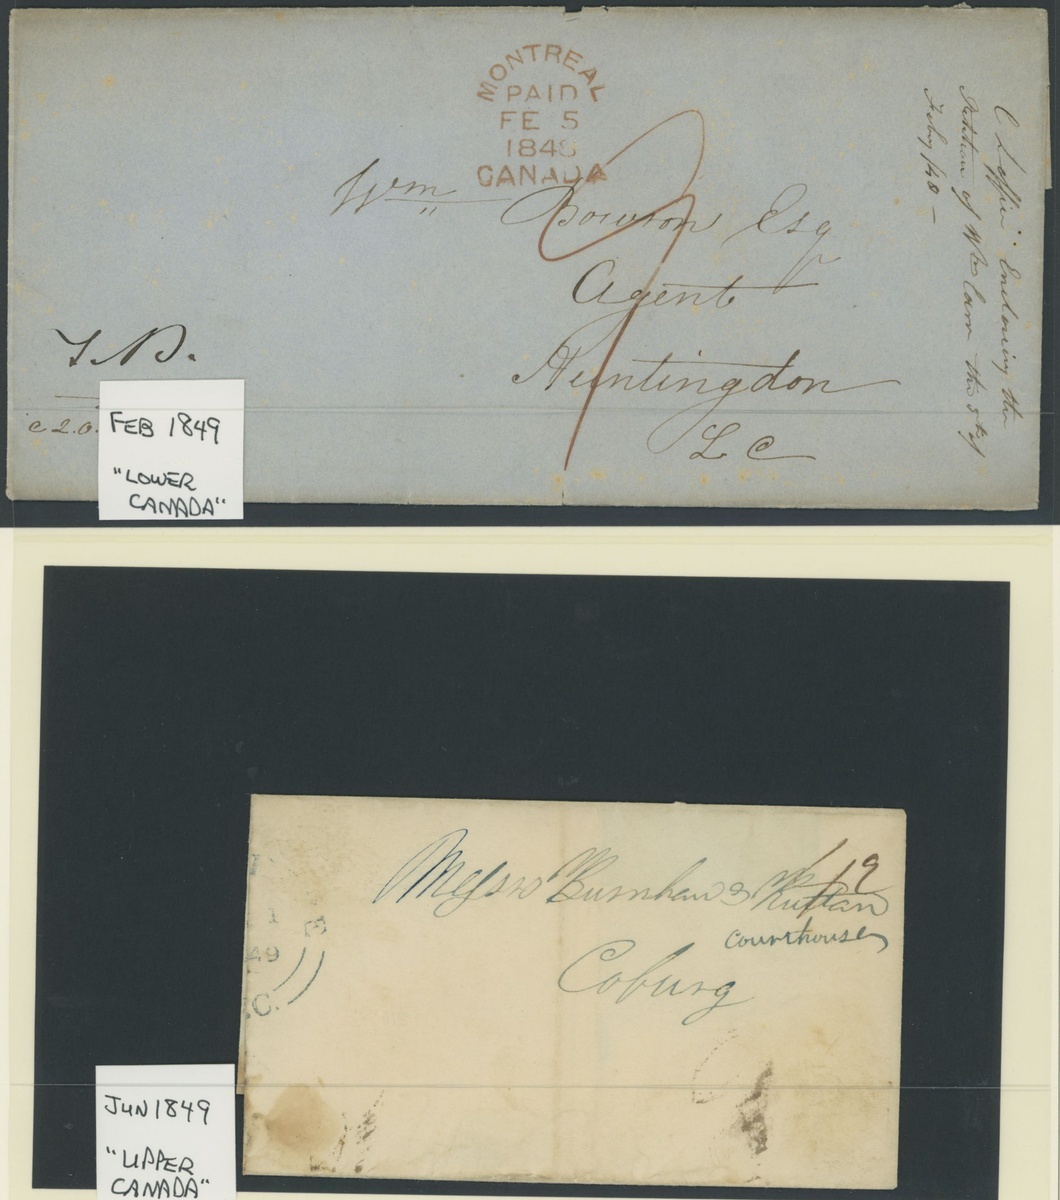 MONTREAL
PAID
FE 5
1849
CANADA
Wm Bowron Esq
Agent
Huntingdon
L C
Enclosing the
Petition of Wm Carr the 5th of
FEB 1849
"LOWER
CANADA"
Messrs Burnham & Ruttan
courthouse
Coburg
49
.C.
JUN 1849
"UPPER
CANADA"